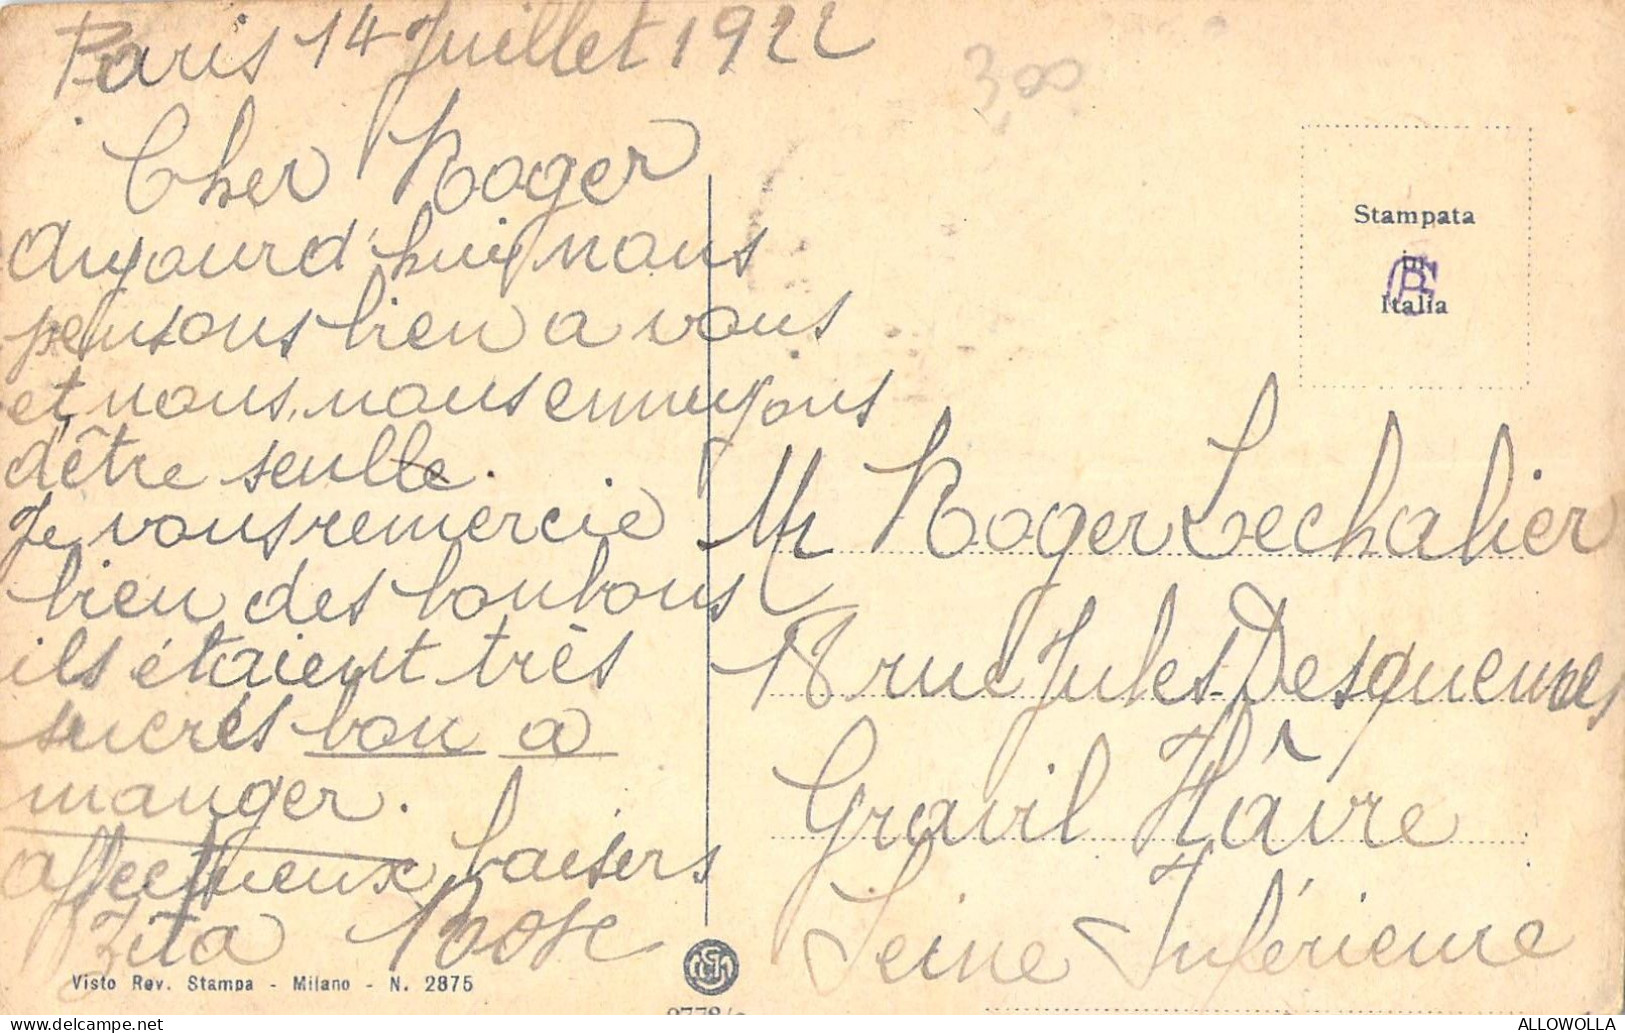 Paris 14 Juillet 1922
300
Cher Roger
aujourd'hui nous
pensons bien a vous
et, nous, nous ennuyons
d'être seulle.
Je vous remercie
bien des bonbons
ils étaient très
sucrés bon a
manger.
affectueux baisers
Zita Rose
Visto Rev. Stampa - Milano - N. 2875
Stampata
in
Italia
Mr Roger Lechalier
18 rue Jules Desquennes
Gravil Hâvre
Seine Inférieure
ALLOWOLLA